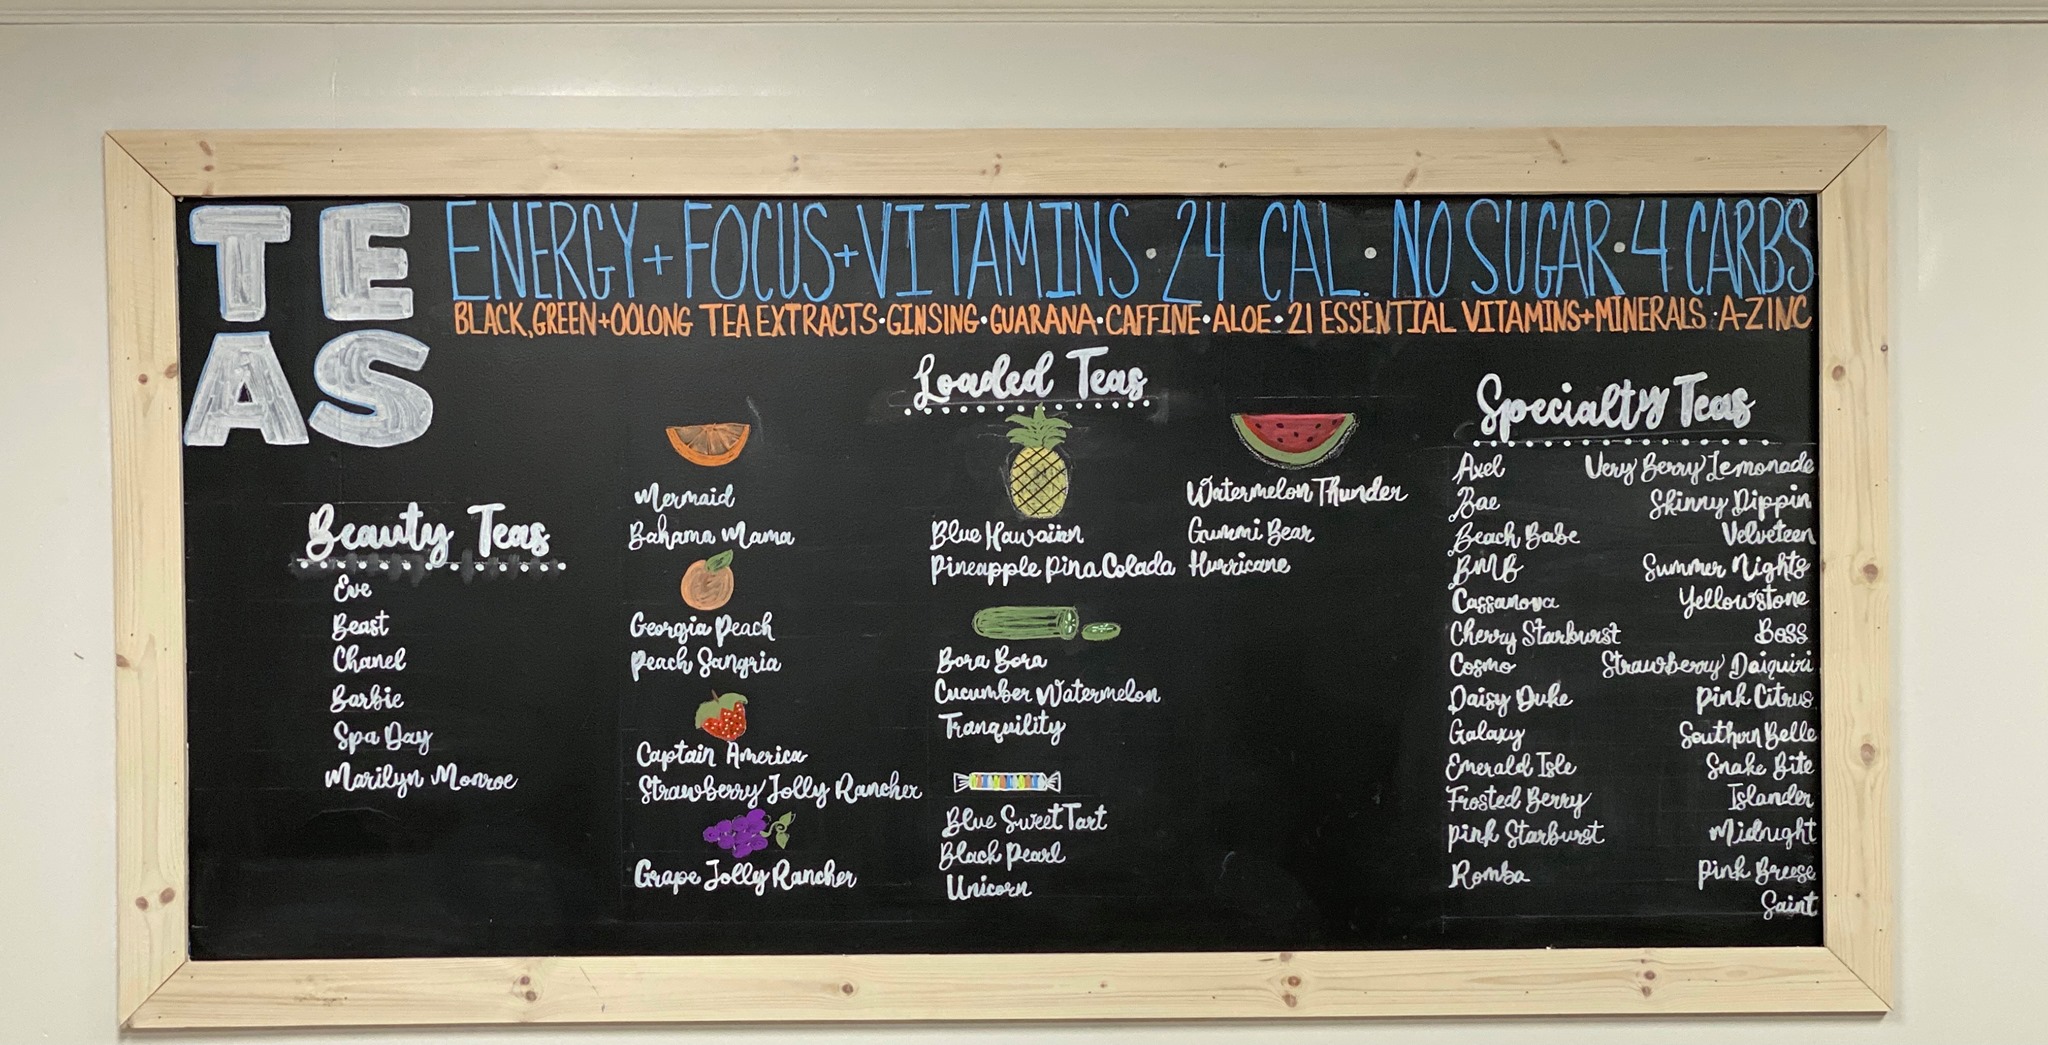 TE
AS
ENERGY + FOCUS + VITAMINS · 24 CAL. · NO SUGAR · 4 CARBS
BLACK, GREEN + OOLONG TEA EXTRACTS · GINSING · GUARANA · CAFFINE · ALOE · 21 ESSENTIAL VITAMINS + MINERALS · A-ZINC
Beauty Teas
Eve
Beast
Chanel
Barbie
Spa Day
Marilyn Monroe
Loaded Teas
Mermaid
Bahama Mama
Georgia Peach
Peach Sangria
Captain America
Strawberry Jolly Rancher
Grape Jolly Rancher
Blue Hawaiian
Pineapple Pina Colada
Bora Bora
Cucumber Watermelon
Tranquility
Blue Sweet Tart
Black Pearl
Unicorn
Watermelon Thunder
Gummi Bear
Hurricane
Specialty Teas
Axel
Bae
Beach Babe
BMF
Cassanova
Cherry Starburst
Cosmo
Daisy Duke
Galaxy
Emerald Isle
Frosted Berry
Pink Starburst
Romba
Very Berry Lemonade
Skinny Dippin
Velveteen
Summer Nights
Yellowstone
Boss
Strawberry Daiquiri
Pink Citrus
Southern Belle
Snake Bite
Islander
Midnught
Pink Breese
Saint